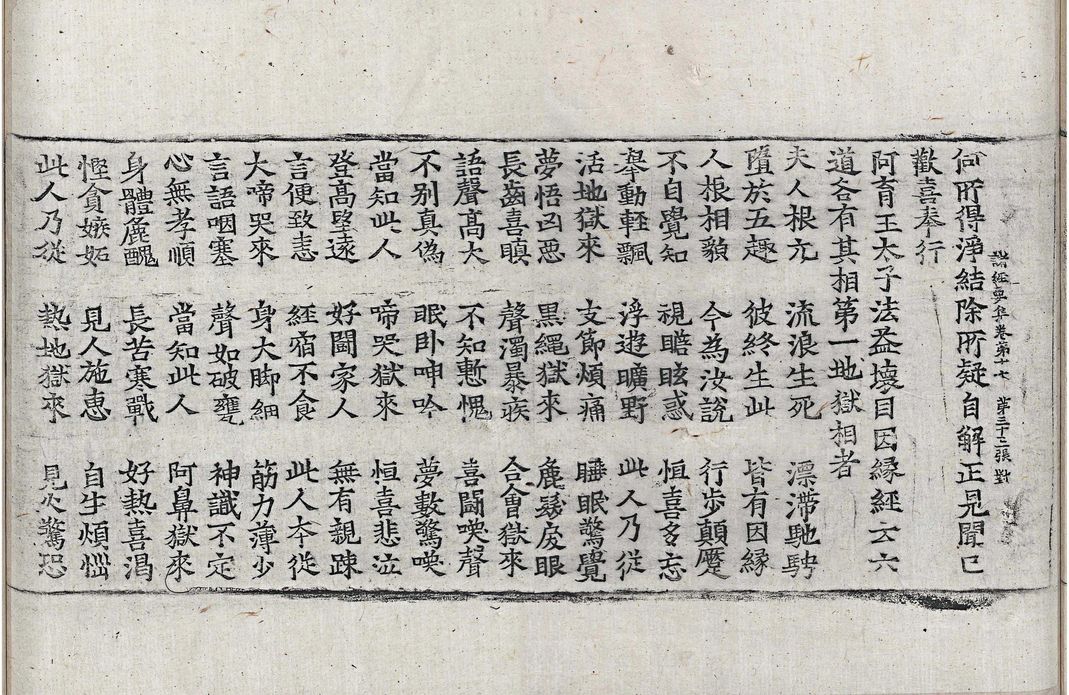 何所得淨結除所疑自解正見聞已
諸經要集卷第十七 第三十三張 對
歡喜奉行
阿育王太子法益壞目因縁經云六
道各有其相第一地獄相者
夫人根元 流浪生死 漂滯馳騁
墮於五趣 彼終生此 皆有因縁
人根相貌 今為汝說 行步顛蹷
不自覺知 視瞻眩惑 恒喜多忘
舉動輕飄 浮遊曠野 此人乃從
活地獄來 支節煩痛 睡眠驚覺
夢悟凶惡 黑繩獄來 麁髮戾眼
長齒喜瞋 聲濁暴疾 合會獄來
語聲高大 不知慙愧 喜鬪喚聲
不別真偽 眠卧呻吟 夢數驚喚
當知此人 啼哭獄來 恒喜悲泣
登高望遠 好鬪家人 無有親踈
言便致恚 經宿不食 此人本從
大啼哭來 身大脚細 筋力薄少
言語咽塞 聲如破甕 神識不定
心無孝順 當知此人 阿鼻獄來
身體麁醜 長苦寒戰 好熱喜渴
慳貪嫉妬 見人施惠 自生煩惱
此人乃從 熱地獄來 見火驚恐